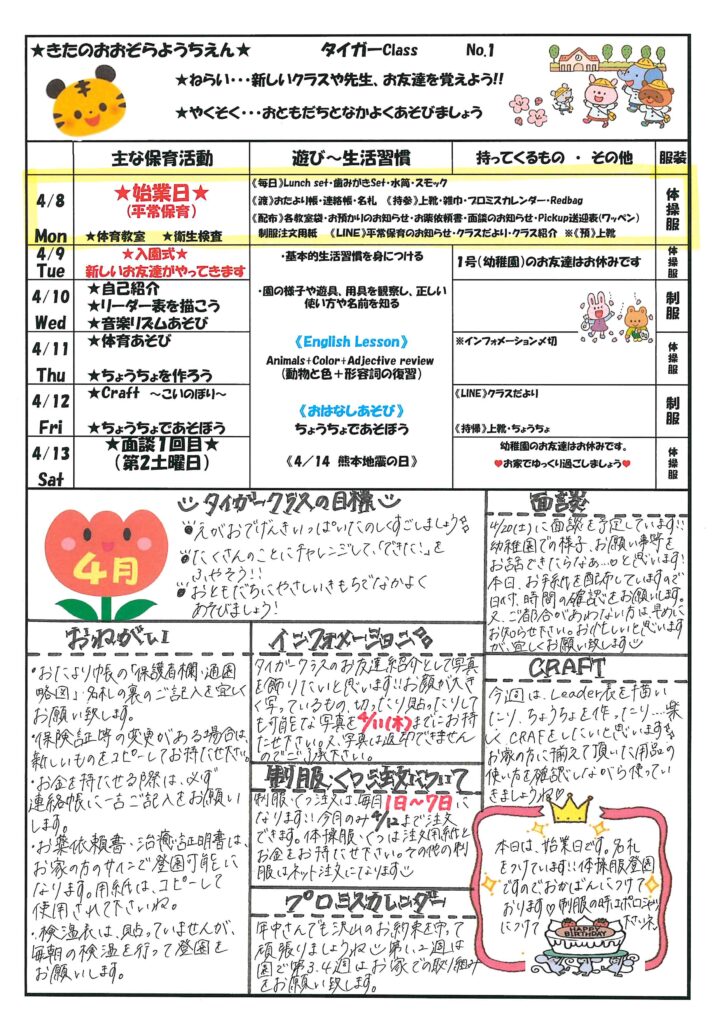 ★きたのおおぞらようちえん★ タイガーClass No.1
★ねらい・・・新しいクラスや先生、お友達を覚えよう!!
★やくそく・・・おともだちとなかよくあそびましょう
主な保育活動 遊び～生活習慣 持ってくるもの ・ その他 服装
4/8 Mon
★始業日★
(平常保育)
★体育教室 ★衛生検査
《毎日》Lunch set・歯みがきSet・水筒・スモック
《渡》おたより帳・連絡帳・名札 《持参》上靴・雑巾・プロミスカレンダー・Redbag
《配布》各教室袋・お預かりのお知らせ・お薬依頼書・面談のお知らせ・Pickup送迎表(ワッペン)
制服注文用紙 《LINE》平常保育のお知らせ・クラスだより・クラス紹介 ※《預》上靴
体操服
4/9 Tue
★入園式★
新しいお友だちがやってきます
・基本的生活習慣を身につける
1号(幼稚園)のお友達はお休みです
体操服
4/10 Wed
★自己紹介
★リーダー表を描こう
★音楽リズムあそび
・園の様子や遊具、用具を観察し、正しい
使い方や名前を知る
制服
4/11 Thu
★体育あそび
★ちょうちょを作ろう
《English Lesson》
Animals+Color+Adjective review
(動物と色+形容詞の復習)
※インフォメーション〆切
体操服
4/12 Fri
★Craft ～こいのぼり～
★ちょうちょであそぼう
《おはなしあそび》
ちょうちょであそぼう
《LINE》クラスだより
《持帰》上靴・ちょうちょ
制服
4/13 Sat
★面談1回目★
(第2土曜日)
《4/14 熊本地震の日》
幼稚園のお友達はお休みです。
♥お家でゆっくり過ごしましょう♥
体操服
4月
タイガークラスの目標
えがおでげんきいっぱいたのしくすごしましょう
たくさんのことにチャレンジして、「できた!」を
ふやそう!!
おともだちにやさしいきもちでなかよく
あそびましょう!
面談
4/20(土)に面談を予定しています!!
幼稚園での様子、お願い事等を
お話できたらなぁ…と思います!
本日、お手紙を配布していますので
日付、時間の確認をお願いします。
又、ご都合があわない方は早めに
お知らせ下さい。お忙しいと思います
が、宜しくお願い致します
おねがい
・おたより帳の「保護者欄・通園
略図」・名札の裏のご記入を宜しく
お願い致します。
・保険証等の変更がある場合は、
新しいものをコピーしてお持たせ下さい。
・お金を持たせる際は、必ず
連絡帳に一言ご記入をお願い
します。
・お薬依頼書・治癒証明書は、
お家の方のサインで登園可能に
なります。用紙は、コピーして
使用されて下さいね。
・検温表は、貼っていませんが、
毎朝の検温を行って登園を
お願いします。
インフォメーション
タイガークラスのお友達紹介として写真
を飾りたいと思います!!お顔が大き
く写っているもの、切ったり貼ったりして
も可能な写真を4/11(木)までにお持
たせ下さい。又、写真は返却できません
のでご了承下さい。
制服・くつ注文について
制服・くつ注文は、毎月1日～7日に
なります!!今月のみ4/12まで注文
できます。体操服・くつは注文用紙と
お金をお持たせ下さい。その他の制
服はネット注文になります
プロミスカレンダー
年中さんでも沢山のお約束を守って
頑張りましょうね 第1.2週は
園で第3.4週はお家での取り組み
をお願い致します。
CRAFT
今週は、Leader表を描い
たり、ちょうちょを作ったり…楽
しくCRAFTをしたいと思います
お家の方に揃えて頂いた用品の
使い方を確認しながら使ってい
きましょうね♡
本日は、始業日です。名札
をつけています!!体操服登園
ですのでおかばんにつけて
おります♡制服の時はポロシャツ
につけて下さいネ
HAPPY BIRTHDAY